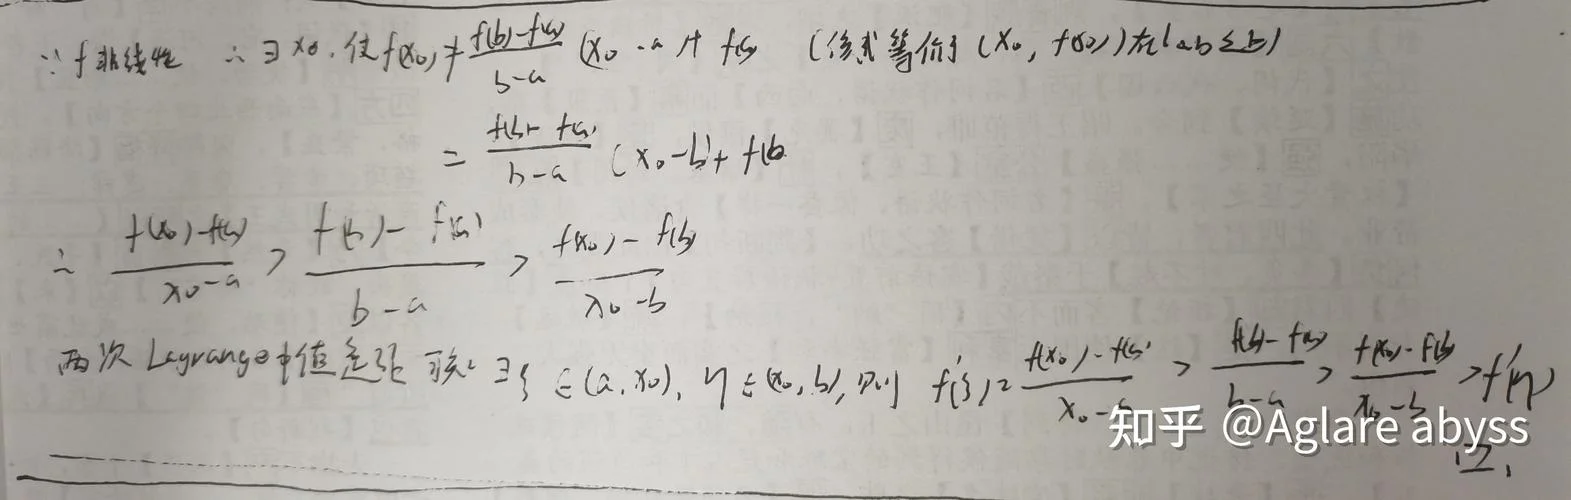 ∵ f非线性 ∴ ∃ x₀, 使 f(x₀) ≠ \frac{f(b)-f(a)}{b-a} (x₀-a)+ f(a) (该式等价于 (x₀, f(x₀)) 在 l_{ab} 上)
= \frac{f(b)-f(a)}{b-a} (x₀-b)+ f(b)
∴ \frac{f(x₀)-f(a)}{x₀-a} > \frac{f(b)-f(a)}{b-a} > \frac{f(x₀)-f(b)}{x₀-b}
两次Lagrange中值定理 ∃ξ ∈(a,x₀), η∈(x₀,b), 则 f'(ξ) = \frac{f(x₀)-f(a)}{x₀-a} > \frac{f(b)-f(a)}{b-a} > \frac{f(x₀)-f(b)}{x₀-b} > f'(η)
知乎 @Aglare abyss